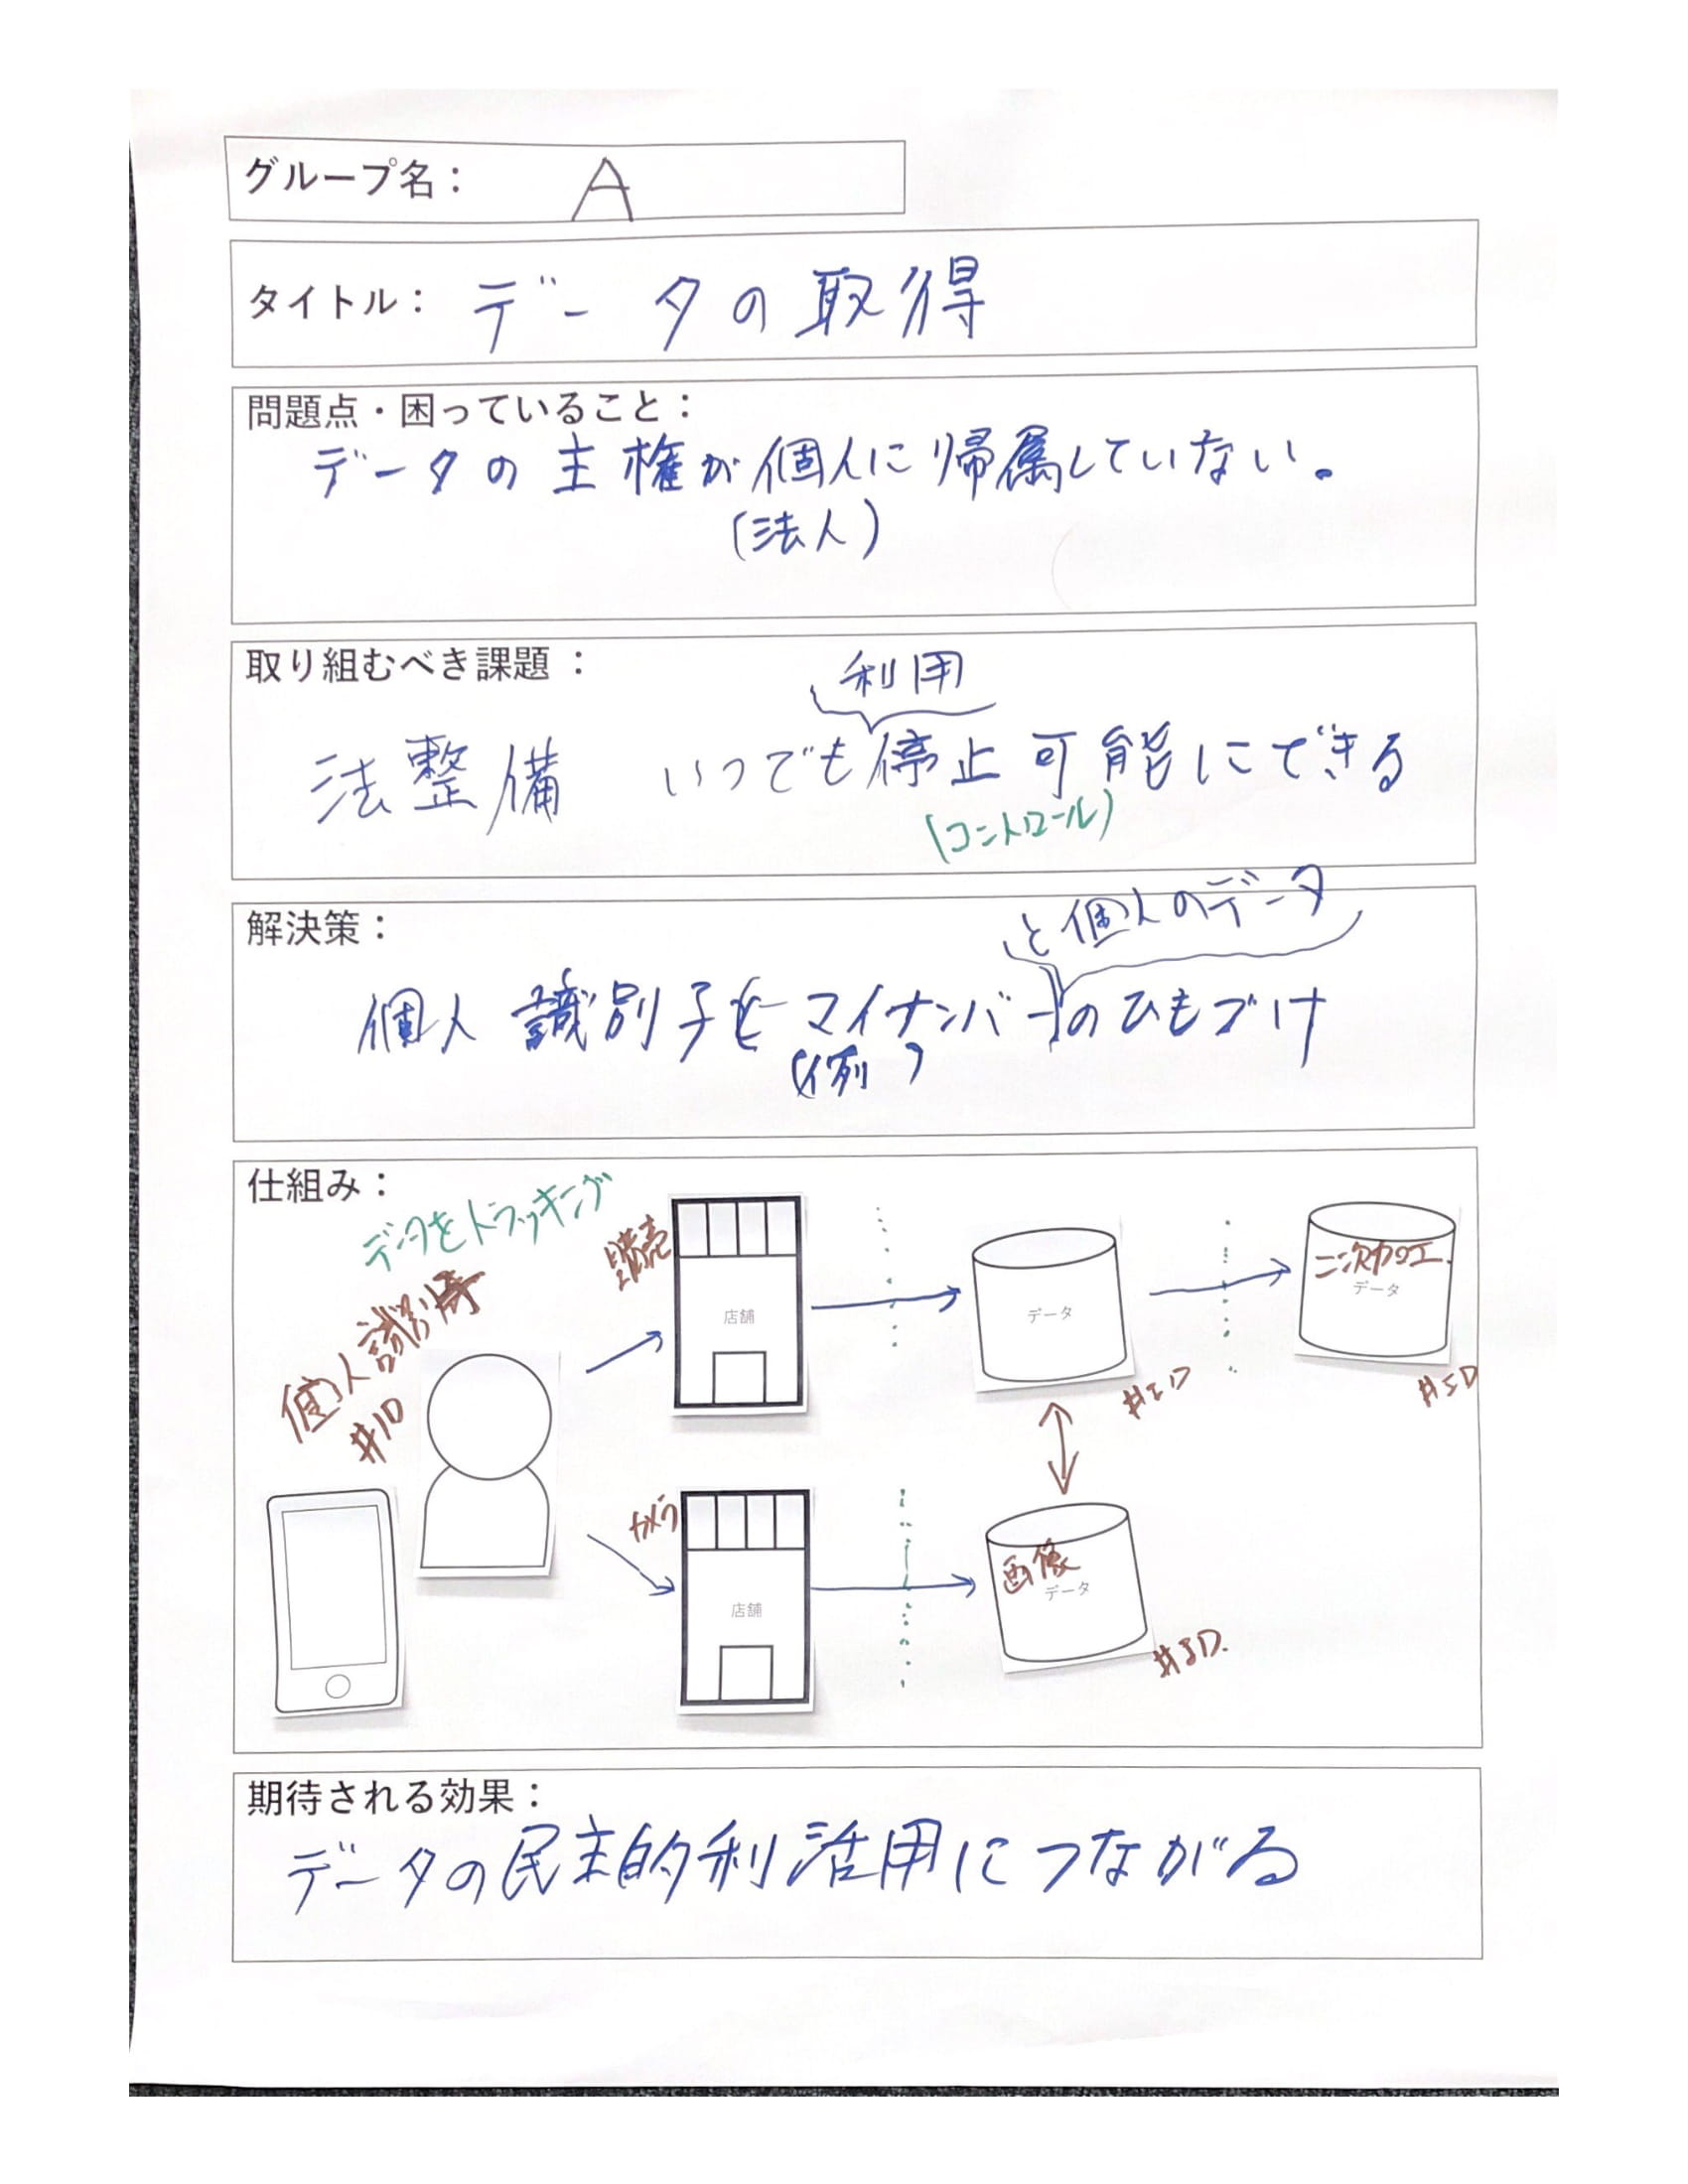 グループ名： A
タイトル： データの取得
問題点・困っていること：
データの主権が個人に帰属していない。
(法人)
取り組むべき課題：
利用
法整備 いつでも停止可能にできる
(コントロール)
解決策：
と個人のデータ
個人識別子を マイナンバーのひもづけ
(例)
仕組み：
データをトラッキング
個人識別
#ID
購売
店舗
データ
#ID
二次加工
データ
#ID
カメラ
店舗
画像
データ
#ID.
期待される効果：
データの民主的利活用につながる